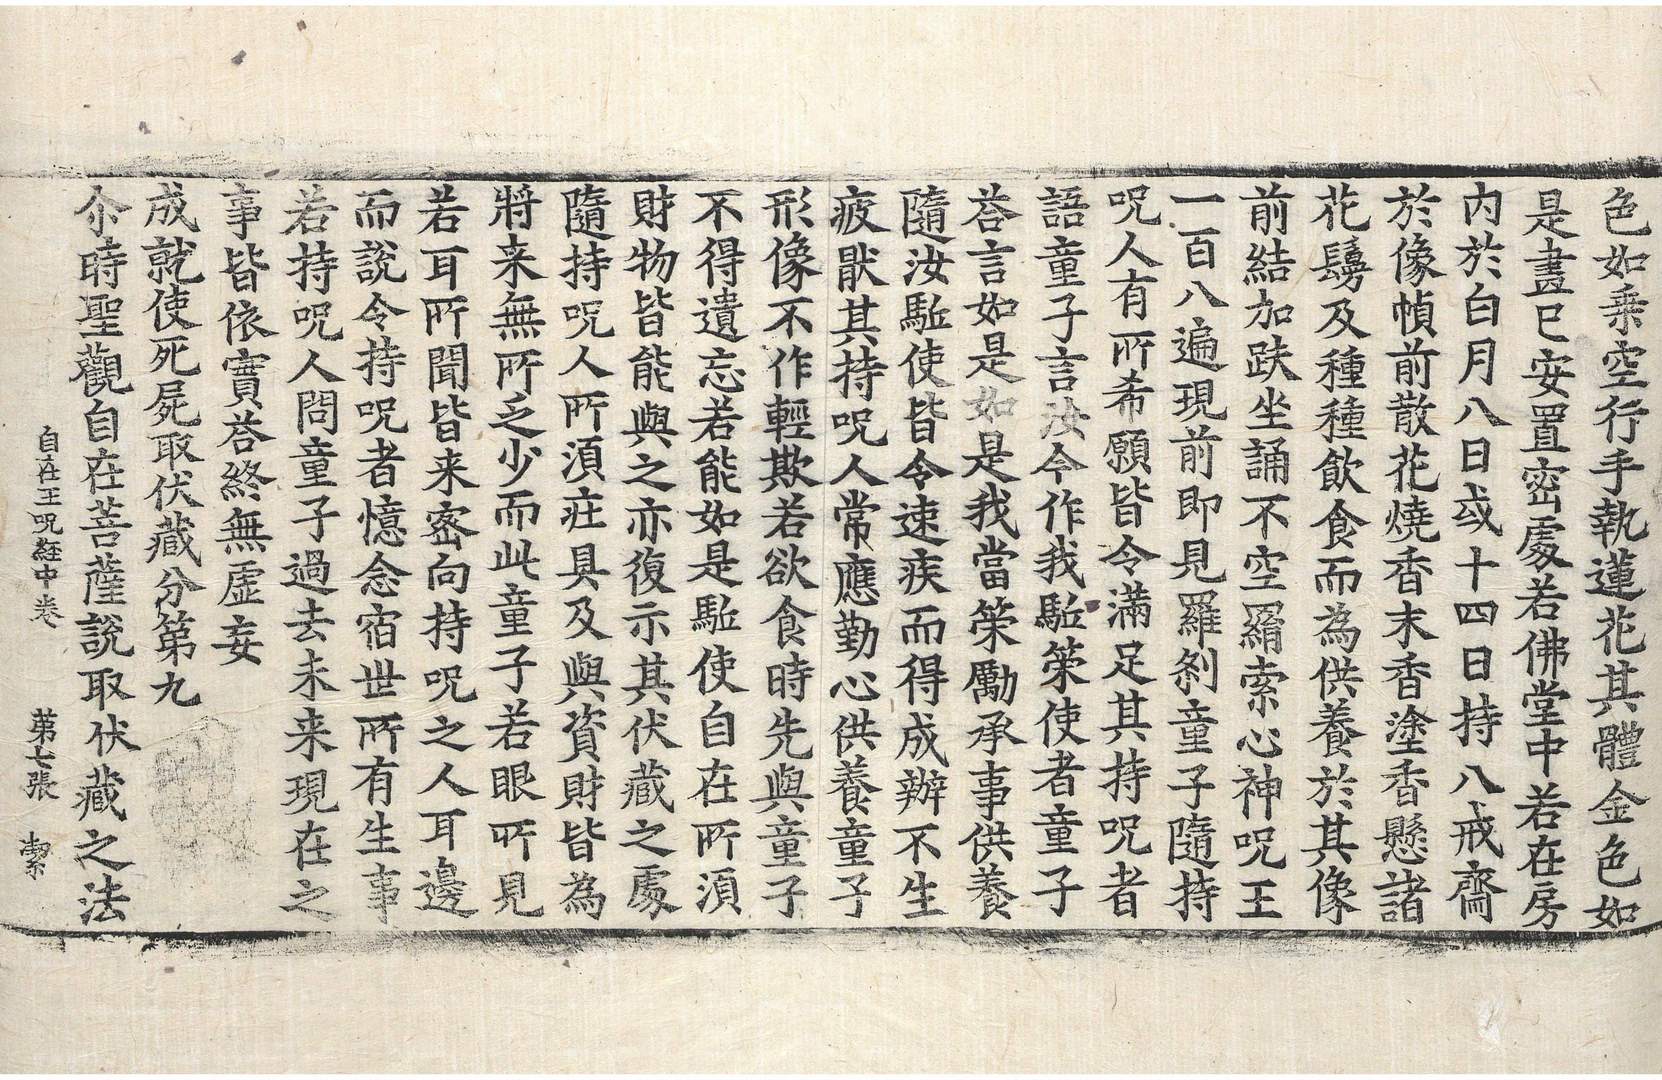 色如乘空行手執蓮花其體金色如
是畫已安置密處若佛堂中若在房
內於白月八日或十四日持八戒齋
於像幀前散花燒香末香塗香懸諸
花鬘及種種飲食而為供養於其像
前結加趺坐誦不空羂索心神呪王
一百八遍現前即見羅剎童子隨持
呪人有所希願皆令滿足其持呪者
語童子言汝今作我駈策使者童子
荅言如是如是我當策勵承事供養
隨汝駈使皆令速疾而得成辦不生
疲猒其持呪人常應勤心供養童子
形像不作輕欺若欲食時先與童子
不得遺忘若能如是駈使自在所湏
財物皆能與之亦復示其伏藏之處
隨持呪人所湏莊具及與資財皆為
將来無所乏少而此童子若眼所見
若耳所聞皆来密向持呪之人耳邊
而說令持呪者憶念宿世所有生事
若持呪人問童子過去未来現在之
事皆依實荅終無虛妄
成就使死屍取伏藏分第九
尒時聖觀自在菩薩說取伏藏之法
自在王呪経中卷 第七張 潔